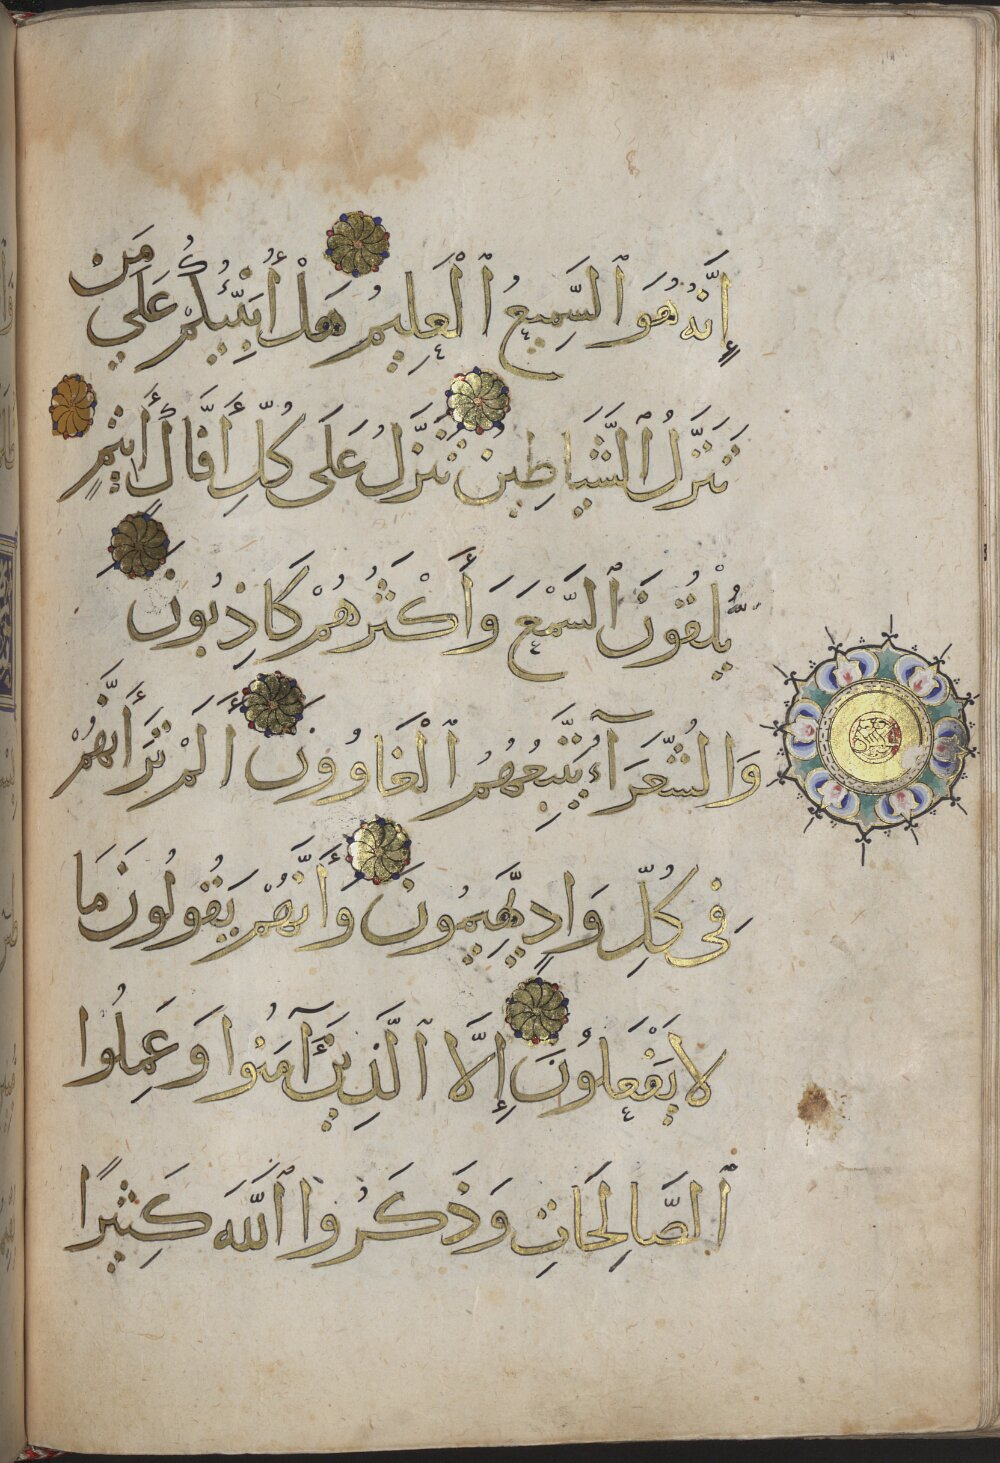 إِنَّهُ هُوَ ٱلسَّمِيعُ ٱلْعَلِيمُ هَلْ أُنَبِّئُكُمْ عَلَى مَن
تَنَزَّلُ ٱلشَّيَاطِينُ تَنَزَّلُ عَلَى كُلِّ أَفَّاكٍ أَثِيمٍ
يُلْقُونَ ٱلسَّمْعَ وَأَكْثَرُهُمْ كَاذِبُونَ
وَالشُّعَرَآءُ يَتَّبِعُهُمُ ٱلْغَاوُونَ أَلَمْ تَرَ أَنَّهُمْ
فِى كُلِّ وَادٍ يَهِيمُونَ وَأَنَّهُمْ يَقُولُونَ مَا
لَا يَفْعَلُونَ إِلَّا ٱلَّذِينَ آمَنُوا وَعَمِلُوا
ٱلصَّالِحَاتِ وَذَكَرُوا ٱللَّهَ كَثِيرًا